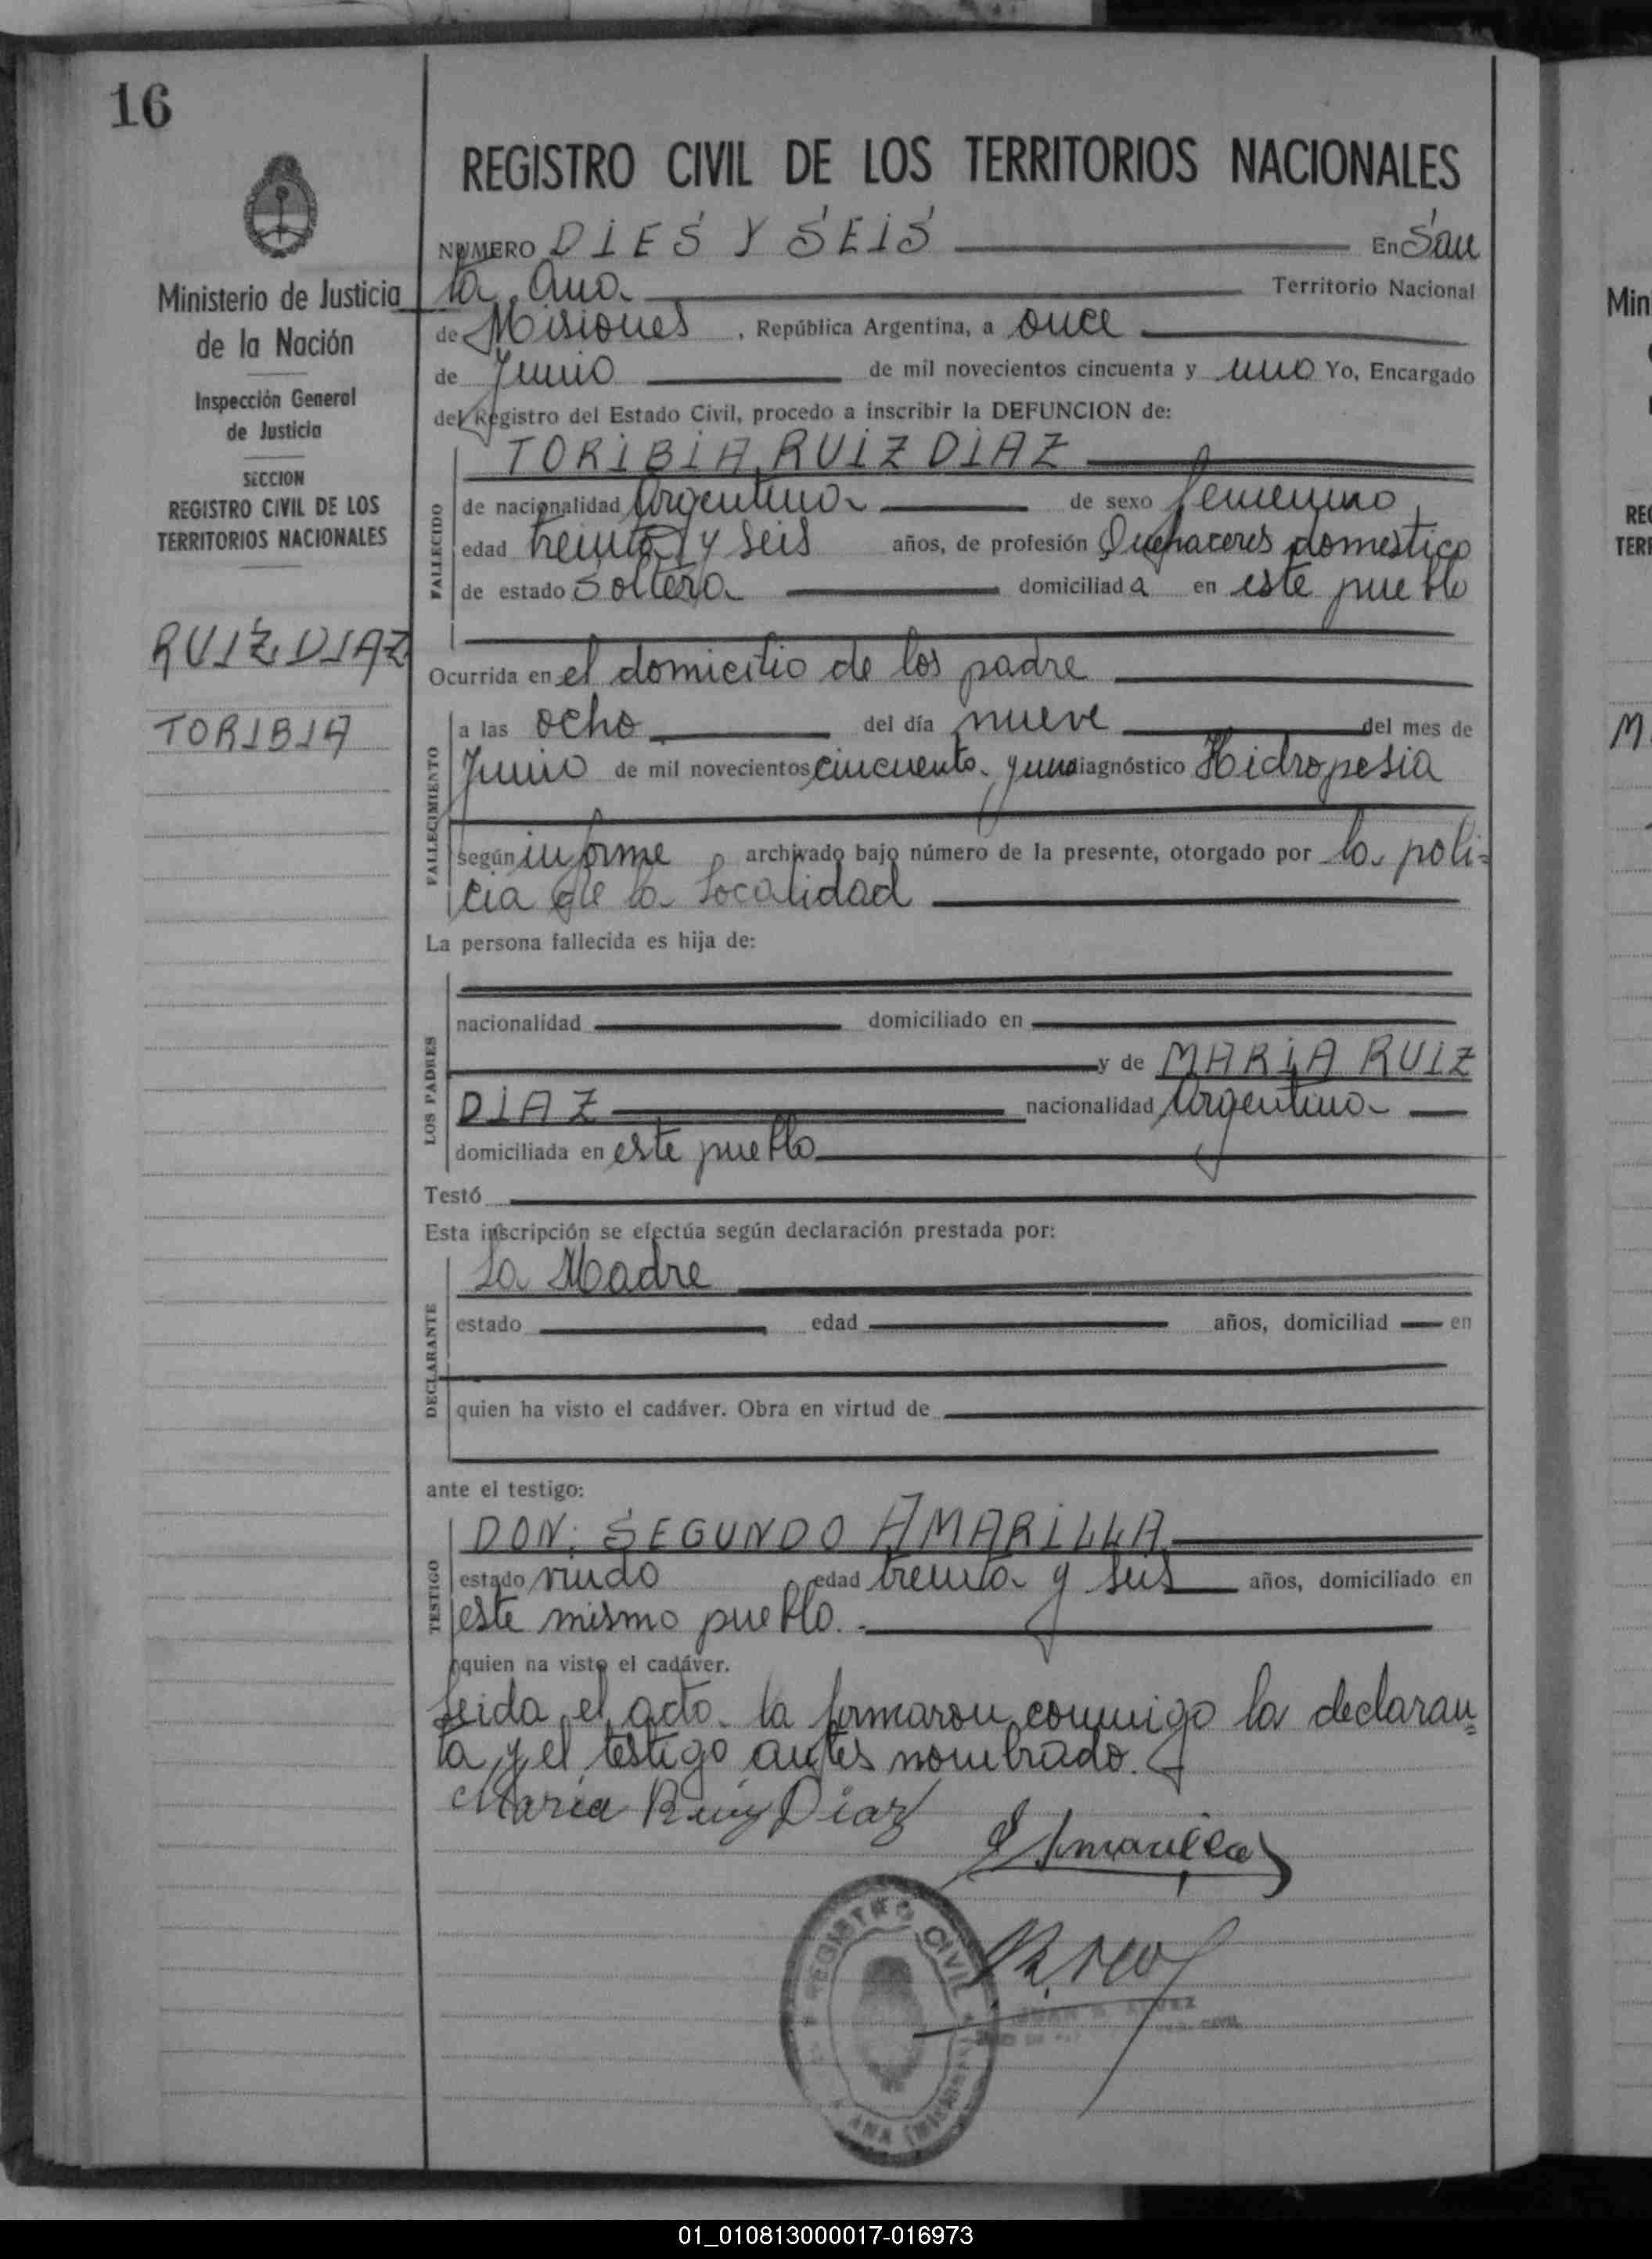 16
REGISTRO CIVIL DE LOS TERRITORIOS NACIONALES
Ministerio de Justicia
de la Nación
Inspección General
de Justicia
SECCION
REGISTRO CIVIL DE LOS
TERRITORIOS NACIONALES
RUIZ DIAZ
TORIBIA
NUMERO DIES Y SEIS En San
ta Ana Territorio Nacional
de Misiones , República Argentina, a once
de Junio de mil novecientos cincuenta y uno Yo, Encargado
del Registro del Estado Civil, procedo a inscribir la DEFUNCION de:
FALLECIDO
TORIBIA RUIZ DIAZ
de nacionalidad Argentina de sexo femenino
edad treinta y seis años, de profesión Quehaceres domestico
de estado Soltera domiciliada en este pueblo
Ocurrida en el domicilio de los padre
FALLECIMIENTO
a las ocho del día nueve del mes de
Junio de mil novecientos cincuenta y uno diagnóstico Hidropesia
según informe archivado bajo número de la presente, otorgado por la poli=
cia de la Localidad
La persona fallecida es hija de:
LOS PADRES
nacionalidad domiciliado en
y de MARIA RUIZ
DIAZ nacionalidad Argentina
domiciliada en este pueblo
Testó
Esta inscripción se efectúa según declaración prestada por:
DECLARANTE
La Madre
estado edad años, domiciliad en
quien ha visto el cadáver. Obra en virtud de
ante el testigo:
TESTIGO
DON: SEGUNDO AMARILLA
estado viudo edad treinta y seis años, domiciliado en
este mismo pueblo.-
quien ha visto el cadáver.
Leida el acta la firmaron conmigo la declaran=
ta y el testigo antes nombrado.
Maria Ruiz Diaz
S Amarilla
REGISTRO CIVIL
ANA (MISIONES)
Min
REG
TERR
M
01_010813000017-016973